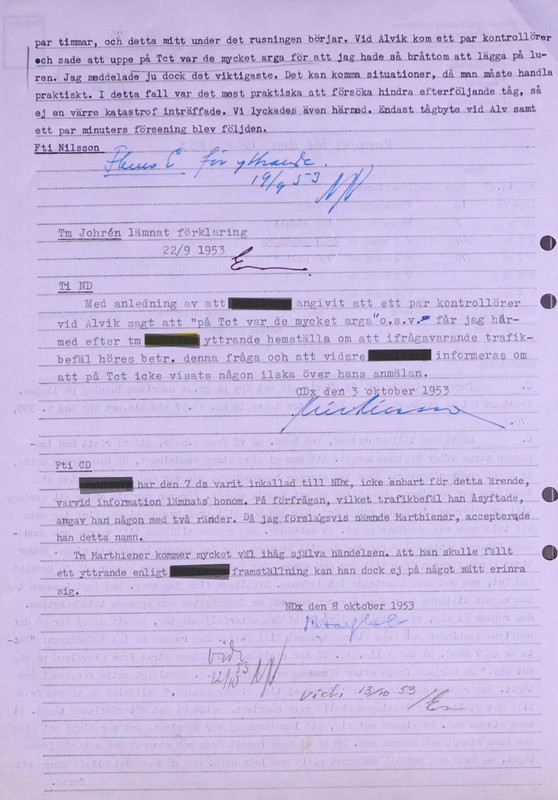 par timmar, och detta mitt under det rusningen börjar. Vid Alvik kom ett par kontrollörer
och sade att uppe på Tct var de mycket arga för att jag hade så bråttom att lägga på lu-
ren. Jag meddelade ju dock det viktigaste. Det kan komma situationer, då man måste handla
praktiskt. I detta fall var det mest praktiska att försöka hindra efterföljande tåg, så
ej en värre katastrof inträffade. Vi lyckades även härmed. Endast tågbyte vid Alv samt
ett par minuters försening blev följden.
Fti Nilsson
för yttrande.
19/9 53
Tm Johrén lämnat förklaring
22/9 1953
Ti ND
Med anledning av att angivit att ett par kontrollörer
vid Alvik sagt att "på Tct var de mycket arga" o.s.v. får jag här-
med efter tm yttrande hemställa om att ifrågavarande trafik-
befäl höres betr. denna fråga och att vidare informeras om
att på Tct icke visats någon ilska över hans anmälan.
CDx den 3 oktober 1953
Fti CD
har den 7 ds varit inkallad till NDx, icke enbart för detta ärende,
varvid information lämnats honom. På förfrågan, vilket trafikbefäl han åsyftade,
angav han någon med två ränder. Då jag förslagsvis nämnde Marthiener, accepterade
han detta namn.
Tm Marthiener kommer mycket väl ihåg själva händelsen. Att han skulle fällt
ett yttrande enligt framställning kan han dock ej på något sätt erinra
sig.
NDx den 8 oktober 1953
Vidi
12/10 53
Vidi 13/10 53